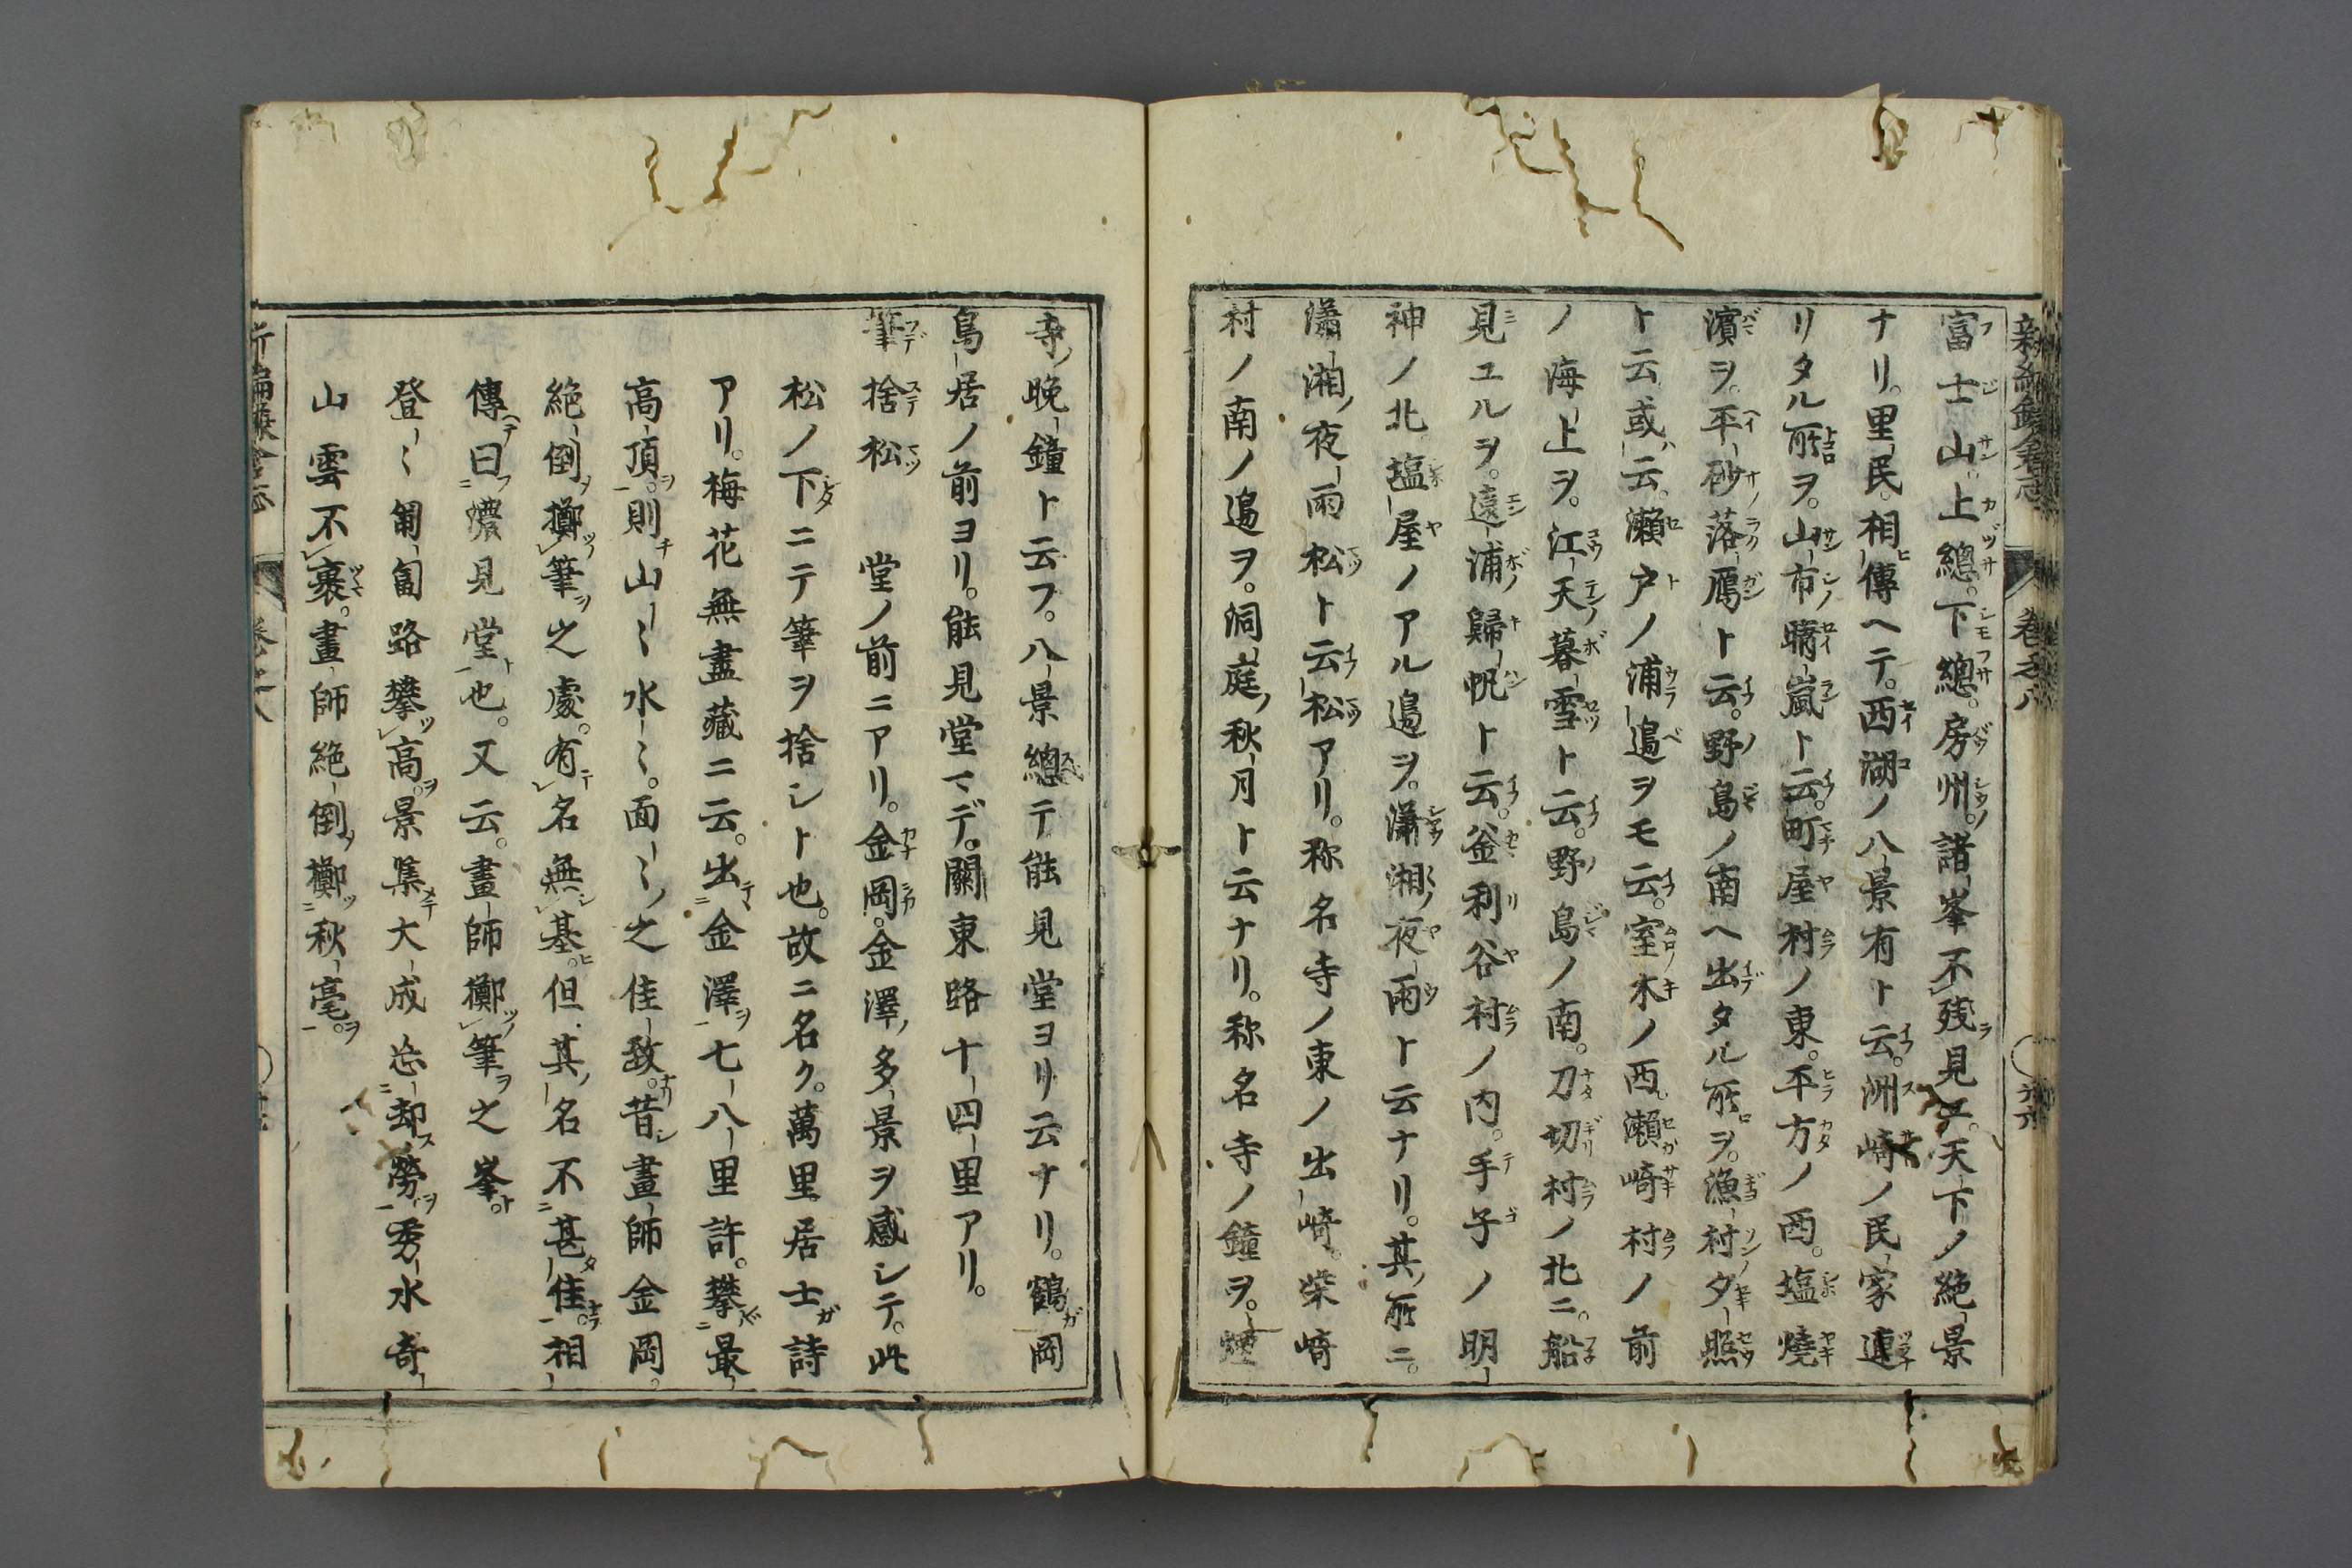 新編鎌倉志 卷之八
富士山。上總。下總。房州。諸峯不残見エ。天下ノ絶景
ナリ。里民相傳ヘテ。西湖ノ八景有ト云。洲崎ノ民家連
リタル所ヲ。山市晴嵐ト云。町屋村ノ東。平方ノ西。塩燒
濱ヲ。平砂落鴈ト云。野島ノ南ヘ出タル所ヲ。漁村夕照
ト云。或云。瀬戸ノ浦邉ヲモ云。室木ノ西。瀬崎村ノ前
ノ海上ヲ。江天暮雪ト云。野島ノ南。刀切村ノ北ニ。船
見ユルヲ。遠浦歸帆ト云。釜利谷村ノ内。手子ノ明
神ノ北塩屋ノアル邉ヲ。瀟湘夜雨ト云ナリ。其所ニ。
瀟湘夜雨松ト云松アリ。称名寺ノ東ノ出崎。柴崎
村ノ南ノ邉ヲ。洞庭秋月ト云ナリ。称名寺ノ鐘ヲ。煙
寺晩鐘ト云フ。八景總テ能見堂ヨリ云ナリ。鶴岡
鳥居ノ前ヨリ。能見堂マデ。關東路十四里アリ。
筆捨松 堂ノ前ニアリ。金岡。金澤ノ多景ヲ感シテ。此
松ノ下ニテ筆ヲ捨シト也。故ニ名ク。萬里居士ガ詩
アリ。梅花無盡藏ニ云。出金澤七八里許。攀最
高頂。則山〻水〻。面〻之佳致。昔畫師金岡。
絶倒擲筆之處。有名無基。但其名不甚佳。相
傳曰濃見堂也。又云。畫師擲筆之峯。
登〻匍匐路攀高。景集大成忘却勞。秀水奇
山雲不裹。畫師絶倒擲秋毫。